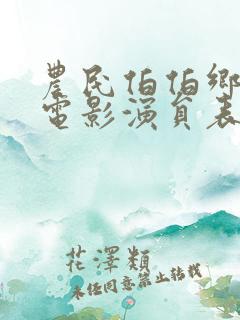 農民伯伯鄉
電影演員表
花澤類
未经同意禁止转载